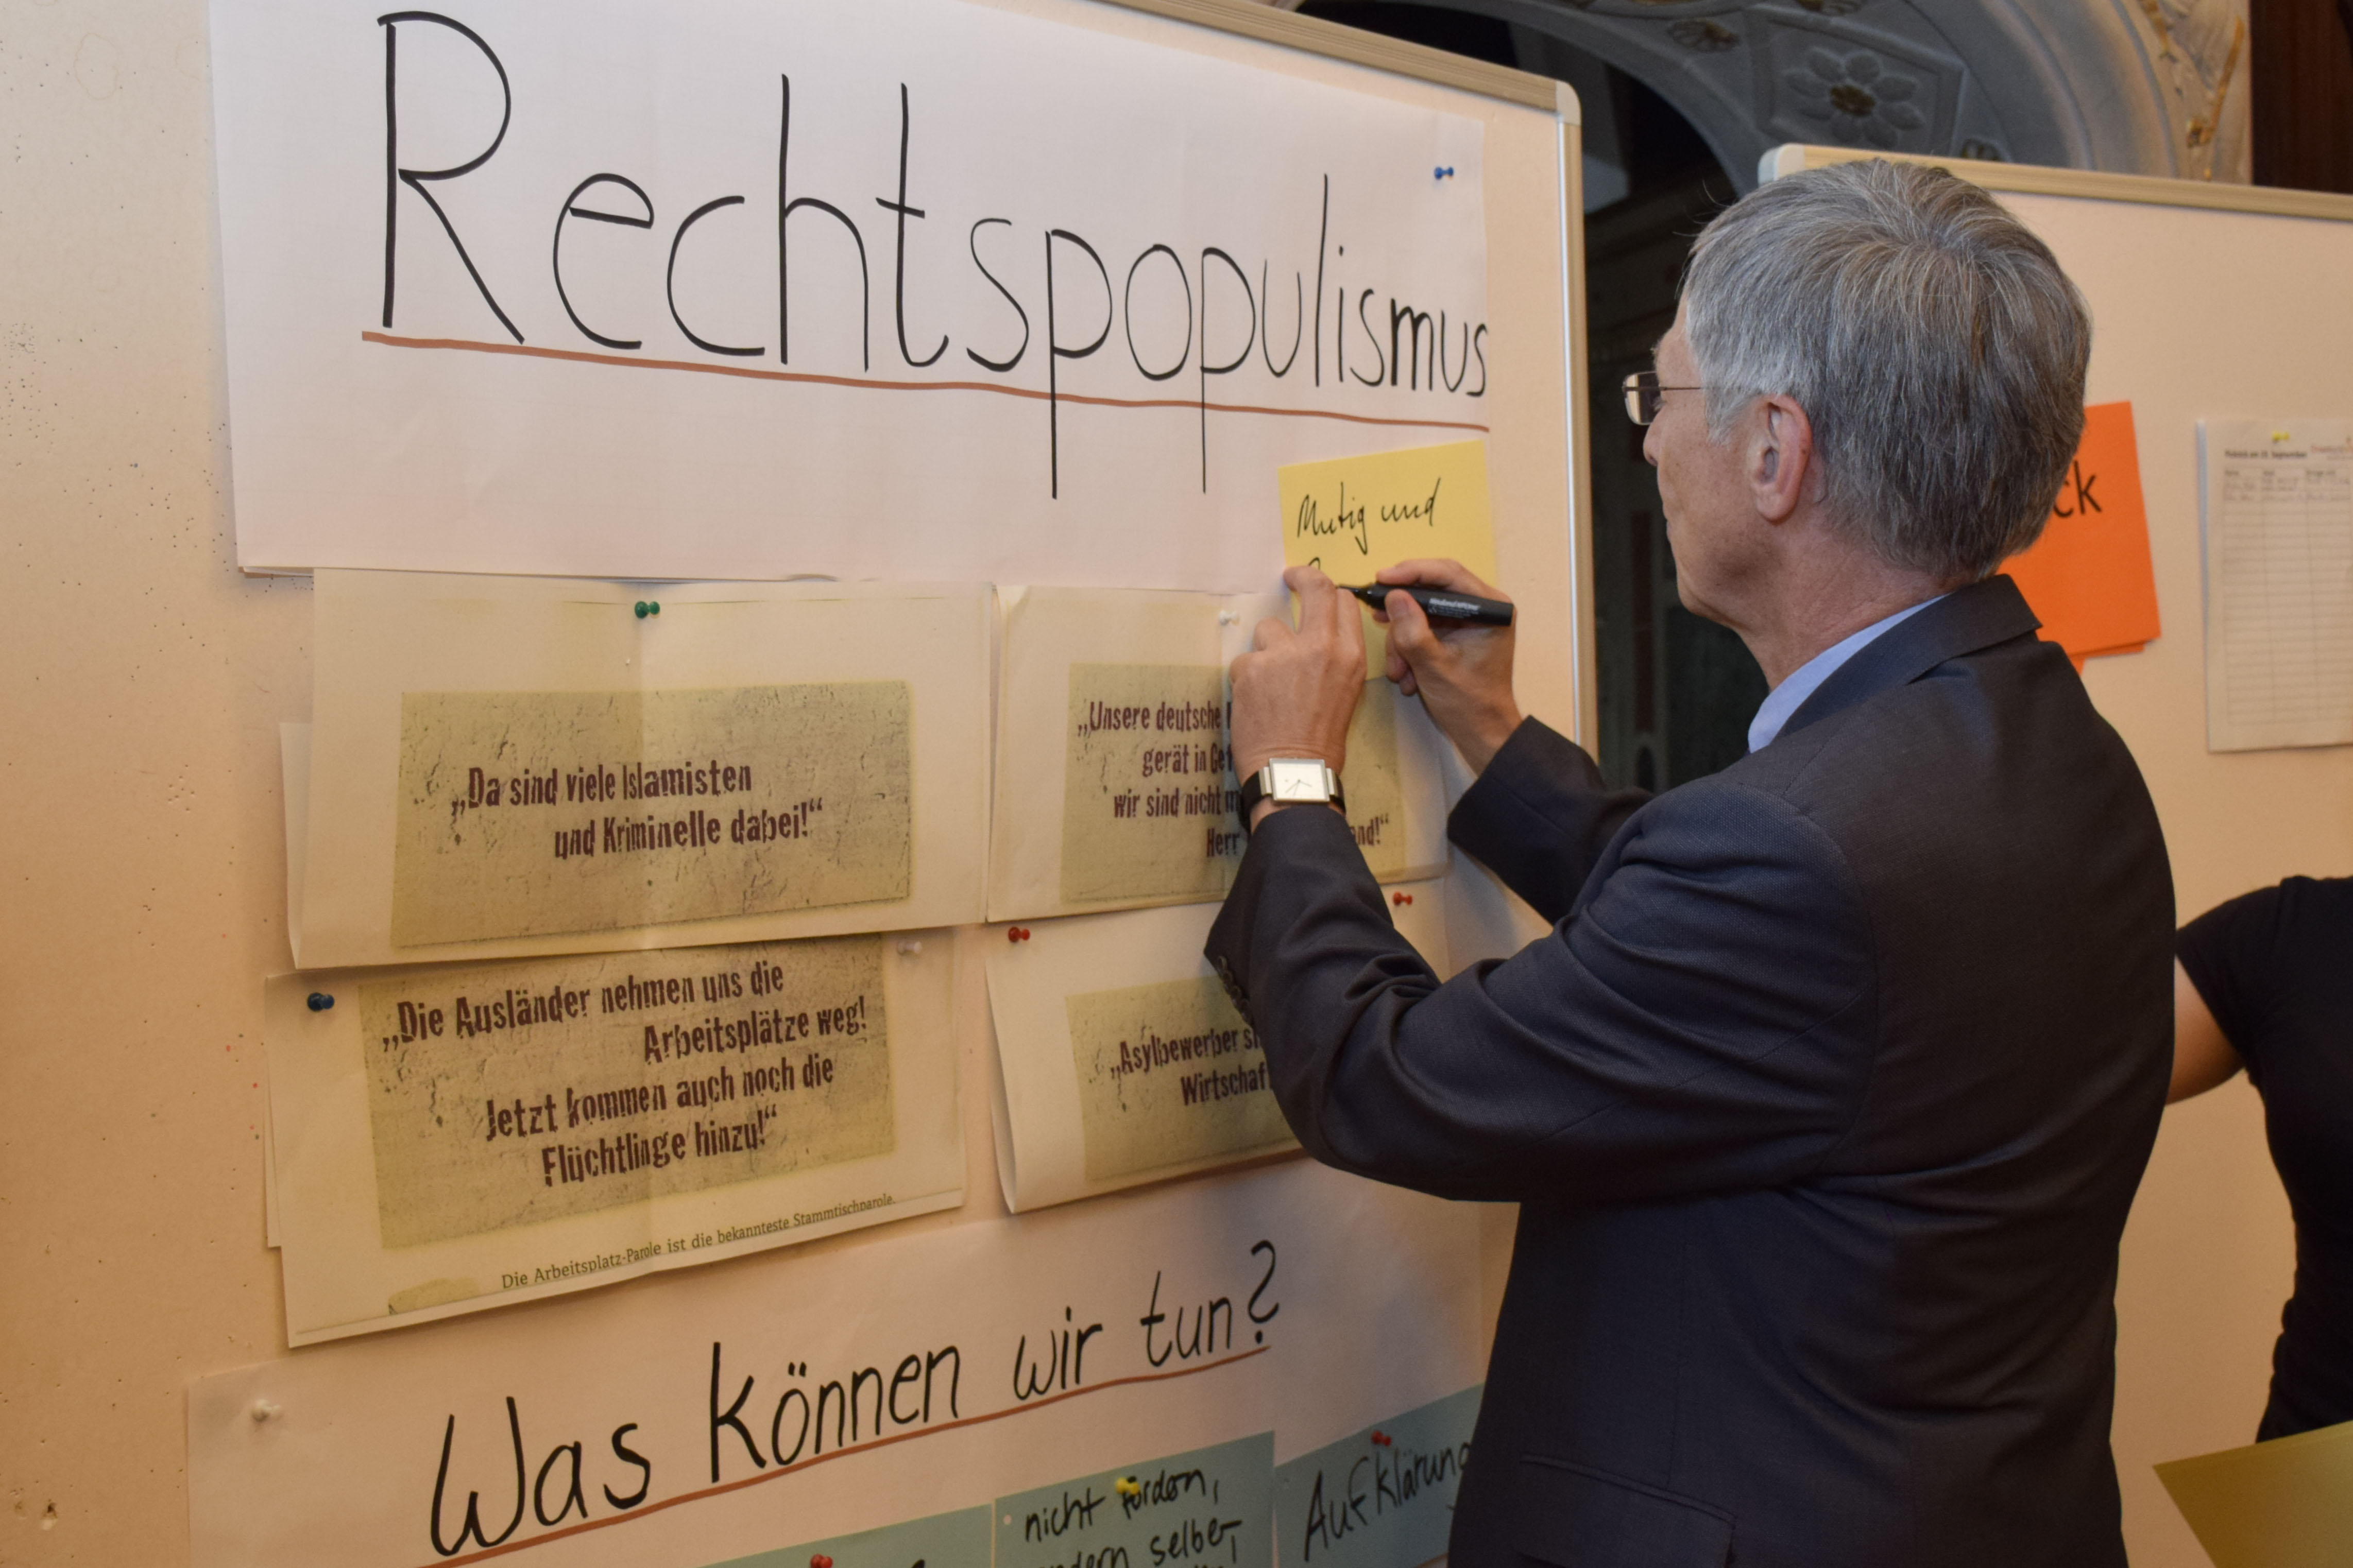 Rechtspopulismus
Mutig und
ck
„Da sind viele Islamisten
und Kriminelle dabei!“
„Unsere deutsche
gerät in
wir sind nicht
Herr
„Die Ausländer nehmen uns die
Arbeitsplätze weg!
Jetzt kommen auch noch die
Flüchtlinge hinzu!“
Die Arbeitsplatz-Parole ist die bekannteste Stammtischparole.
„Asylbewerber
Was können wir tun?
nicht fördern,
selber
Aufklärung